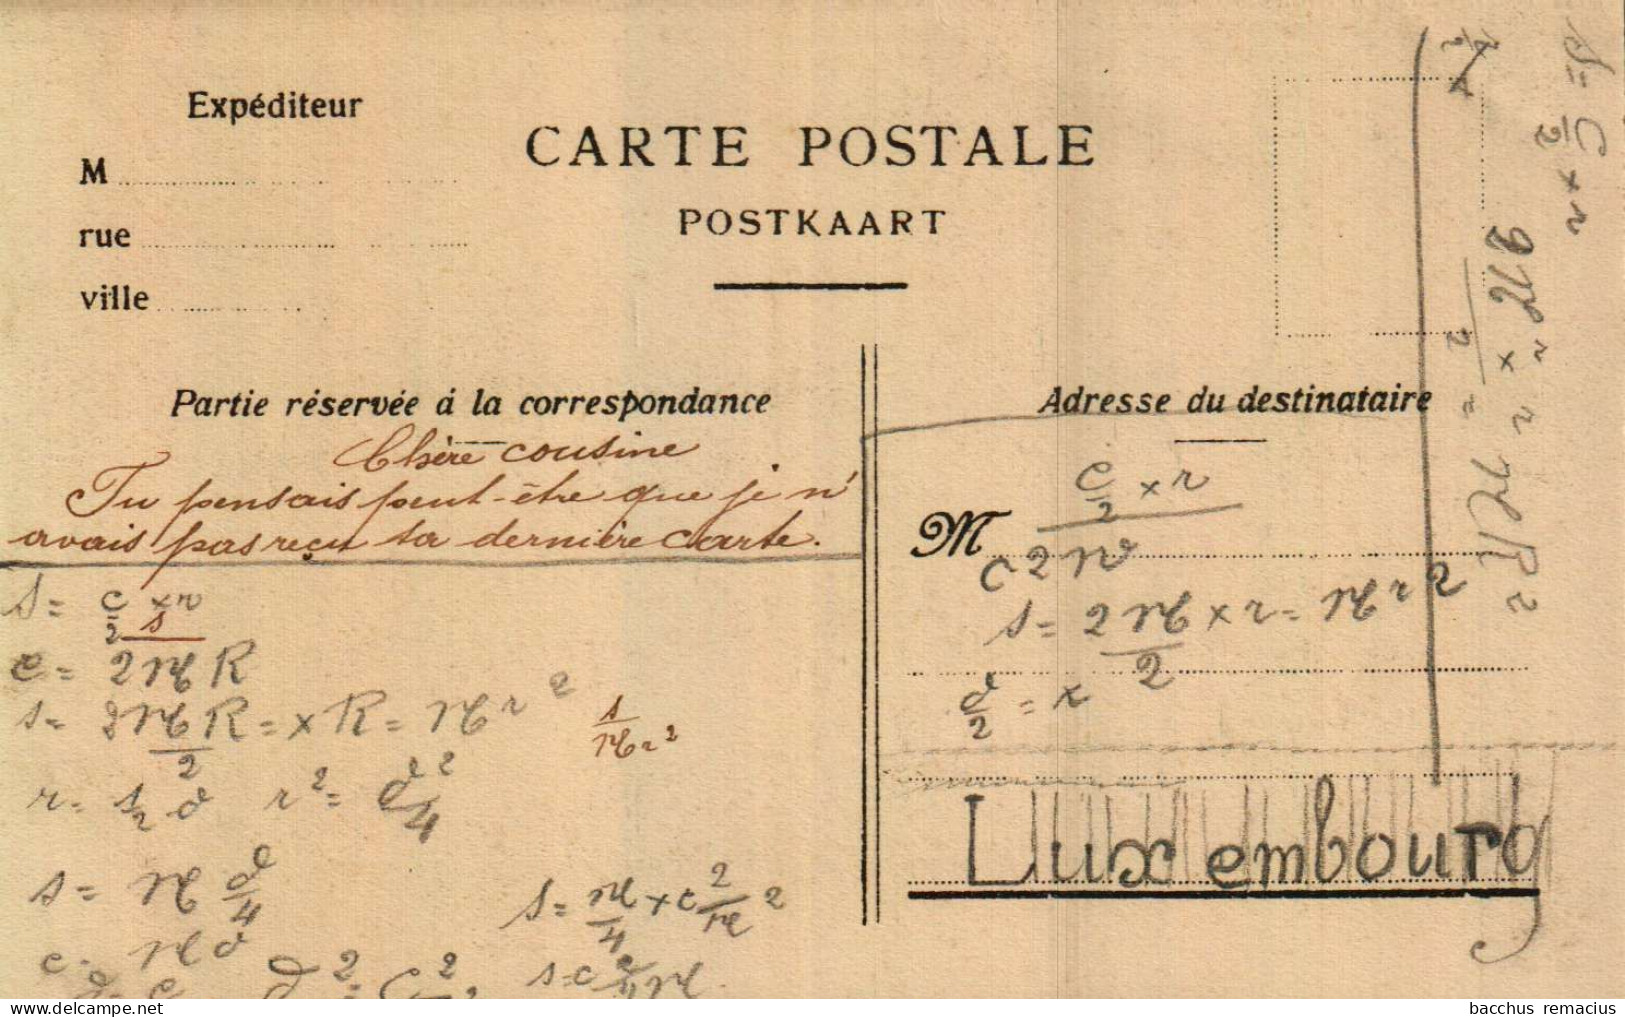 Expéditeur
M
rue
ville
CARTE POSTALE
POSTKAART
Partie réservée á la correspondance
Chère cousine
Tu pensais peut-être que je n'
avais pas reçu ta dernière carte.
S = c/2 × r
s
c = 2πR
s = 2πR/2 = × R = πr²
s/πr²
r² = d²/4
s = π d/4
c = πd
S = π/4 × c²/π²
d² = c²
Adresse du destinataire
M
c/2 × r
c 2π
s = 2π/2 × r = πr²
d/2 = r
Luxembourg
S = c/2 × r
2πr × r / 2 = πR²
bacchus remacius